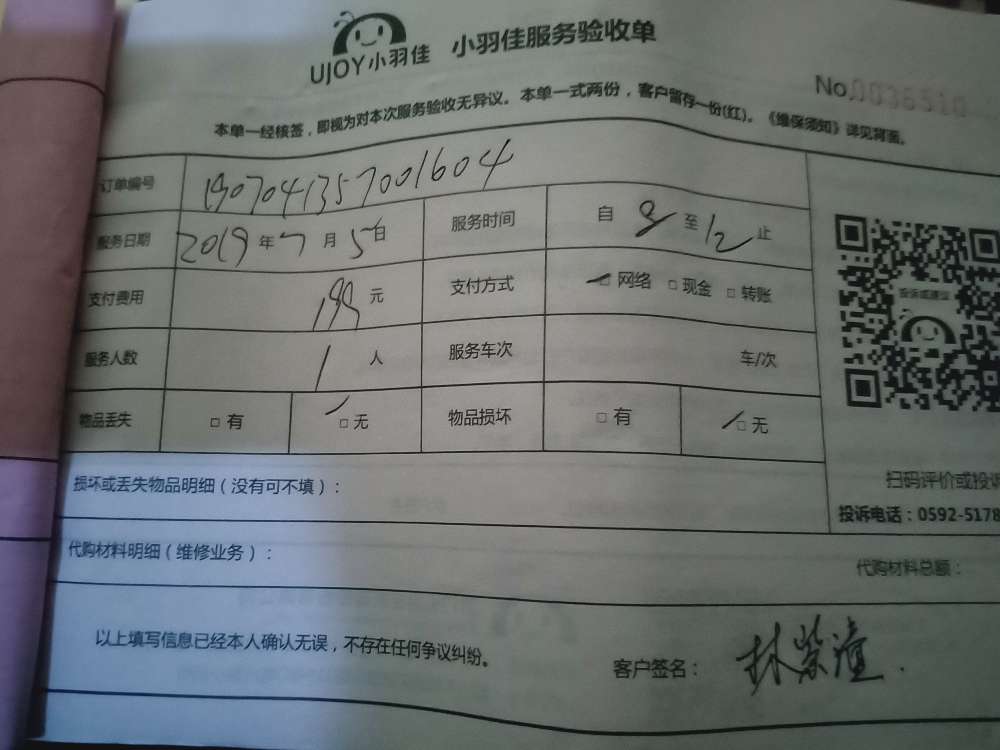 UJOY小羽佳 小羽佳服务验收单
No.0036510
本单一经核签，即视为对本次服务验收无异议。本单一式两份，客户留存一份(红)。《维保须知》详见背面。
订单编号 1907041357001604
服务日期 2019年7月5日 服务时间 自8至12止
支付费用 199元 支付方式 网络 □现金 □转账
服务人数 1人 服务车次 车/次
物品丢失 □有 □无 物品损坏 □有 □无
投诉或建议
损坏或丢失物品明细（没有可不填）：
扫码评价或投诉
投诉电话：0592-5178
代购材料明细（维修业务）：
代购材料总额：
以上填写信息已经本人确认无误，不存在任何争议纠纷。
客户签名：林紫潼